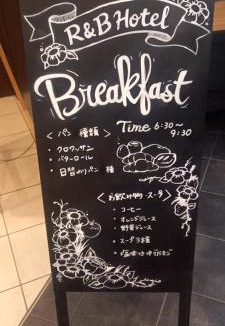 R&B Hotel
Breakfast
＜パン 種類＞
Time 6:30～9:30
・クロワッサン
・バターロール
・日替わりパン 種
＜お飲み物・スープ＞
・コーヒー
・オレンジジュース
・野菜ジュース
・スープ3種